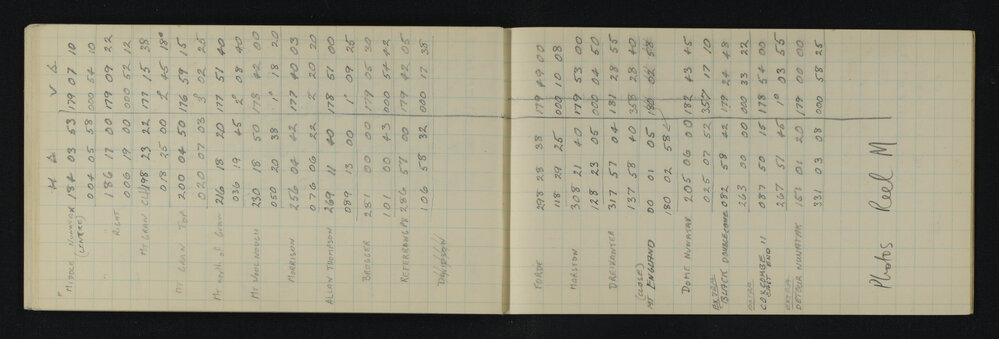 H ∆ V ∆
"MIDDLE NUNATAK 184 03 53 179 07 10
(CENTRE) 004 05 58 000 54 10
" RIGHT 186 17 00 179 09 22
006 19 00 000 52 12
MT GRAN 198 23 22 177 15 38
018 25 00 2° 45 18°
MT GRAN TOP 200 04 50 176 59 15
020 07 03 3° 02 25
MT north of Gran 216 18 20 177 51 40
036 19 45 2° 08 40
MT WOOLNOUGH 230 18 50 178 42 00
050 20 38 1° 18 20
MORRISON 256 04 42 177 40 03
076 06 22 2 20 20
ALLAN THOMPSON 269 11 40 178 51 00
089 13 00 1° 09 25
BROGGER 281 00 00 179 05 30
101 00 43 000 54 42
REFERRING PK 286 57 00 179 42 05
106 58 32 000 17 38
DAVIDSON
FORDE 298 28 38 179 49 00
118 29 25 000 10 08
MARSTON 308 21 40 179 53 00
128 23 05 000 04 50
DREIKANTER 317 57 04 181 28 55
137 58 40 358 28 40
(CLOSE) 00 01 05
MT ENGLAND 180 02 58
DOME NUNATAK 205 06 00 182 43 45
025 07 52 357 17 10
BLACK DOUBLE CONE 082 58 42 179 24 48
263 00 00 000 33 22
COXCOMBE 087 50 15 178 54 00
" 267 51 45 1° 03 55
DETOUR NUNATAK 151 01 20 179 00 00
331 03 08 000 58 25
Photos Reel M